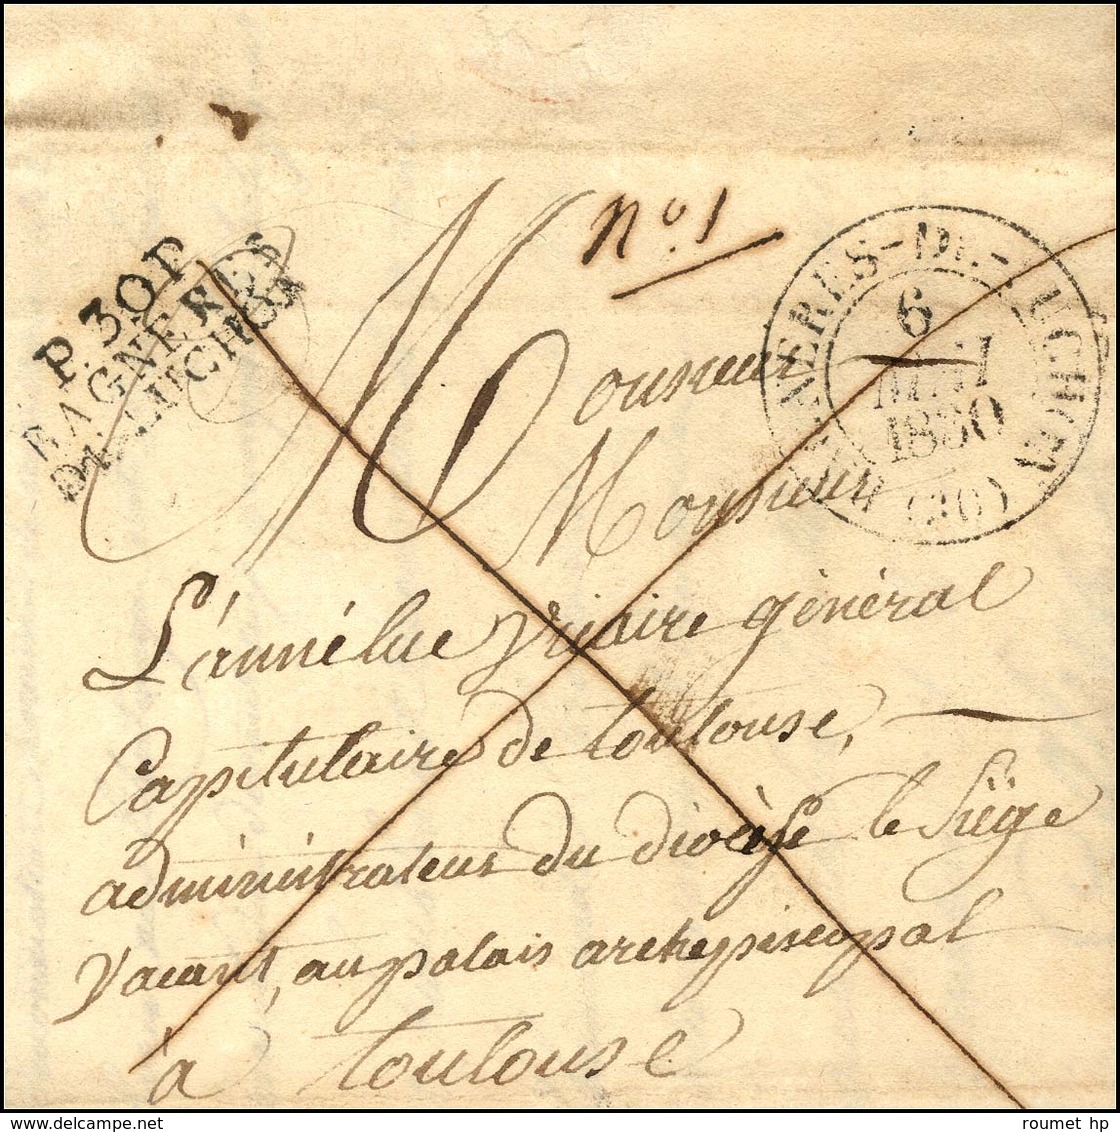 P.30.P.
BAGNÈRES
DE LUCHON
n° 1
BAGNÈRES-DE-LUCHON (30)
6
MAI
1830
Monsieur
Monsieur
Vicaire général
Capitulaire de toulouse,
administrateur du diocèse le Siège
Vacant, au palais archepiscopal
à toulouse
roumet hp